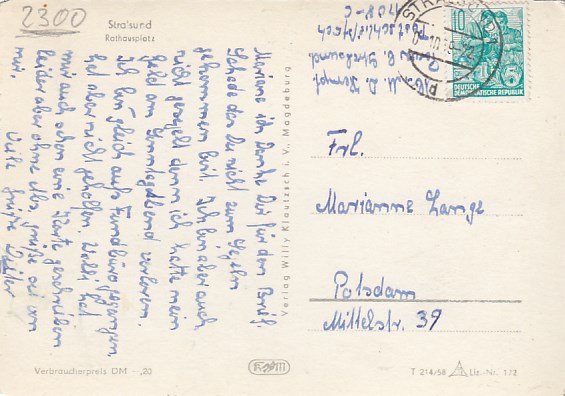 2300
Stralsund
Rathausplatz
Mariane ich danke Dir für den Brief.
Schade das Du nicht zum Segeln
gekommen bist. Ich bin aber auch
nicht gesegelt denn ich hatte mein
Geld am Sonntagabend verloren.
Ich bin gleich aufs Fundbüro gegangen
hat aber nicht geholfen. Walli hat
mir auch schon eine Karte geschrieben
leider aber ohne Abs, grüße sie von
mir.
Viele Grüße Dieter
Verlag Willy Klautzsch i. V., Magdeburg
Abs. M. D.
Stralsund
Postschließfach
STRALSUND
10
DEUTSCHE
DEMOKRATISCHE REPUBLIK
Frl.
Marianne Lange
Potsdam
Mittelstr. 39
Verbraucherpreis DM -,20
T 214/58 Liz.-Nr. 172